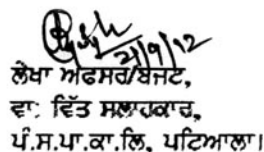 21/9/12
ਲੇਖਾ ਅਫਸਰ/ਬਜਟ,
ਵਾ: ਵਿੱਤ ਸਲਾਹਕਾਰ,
ਪੰ.ਸ.ਪਾ.ਕਾ.ਲਿ, ਪਟਿਆਲਾ।